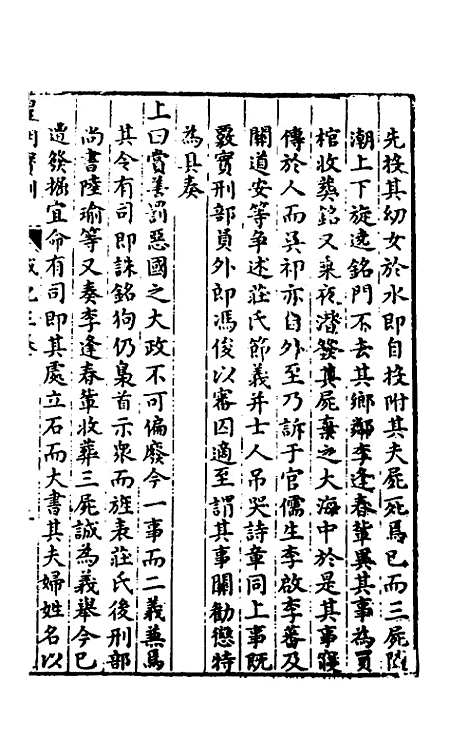 先投其幼女於水即自投附其夫屍死焉已而三屍隨
潮上下旋遶銘門不去其鄉鄰李逢春輩異其事為買
棺收葬銘又乘夜潛發其屍棄之大海中於是其事寖
傳於人而吳祁亦自外至乃訴于官儒生李啟李蕃及
關道安等爭述莊氏節義并士人吊哭詩章同上事既
覈實刑部員外郎馮俊以審囚適至謂其事關勸懲特
為具奏
上曰賞善罰惡國之大政不可偏廢今一事而二義兼焉
其令有司即誅銘狗仍梟首示眾而旌表莊氏後刑部
尚書陸瑜等又奏李逢春輩收葬三屍誠為義舉今已
遭發掘宜命有司即其處立石而大書其夫婦姓名以